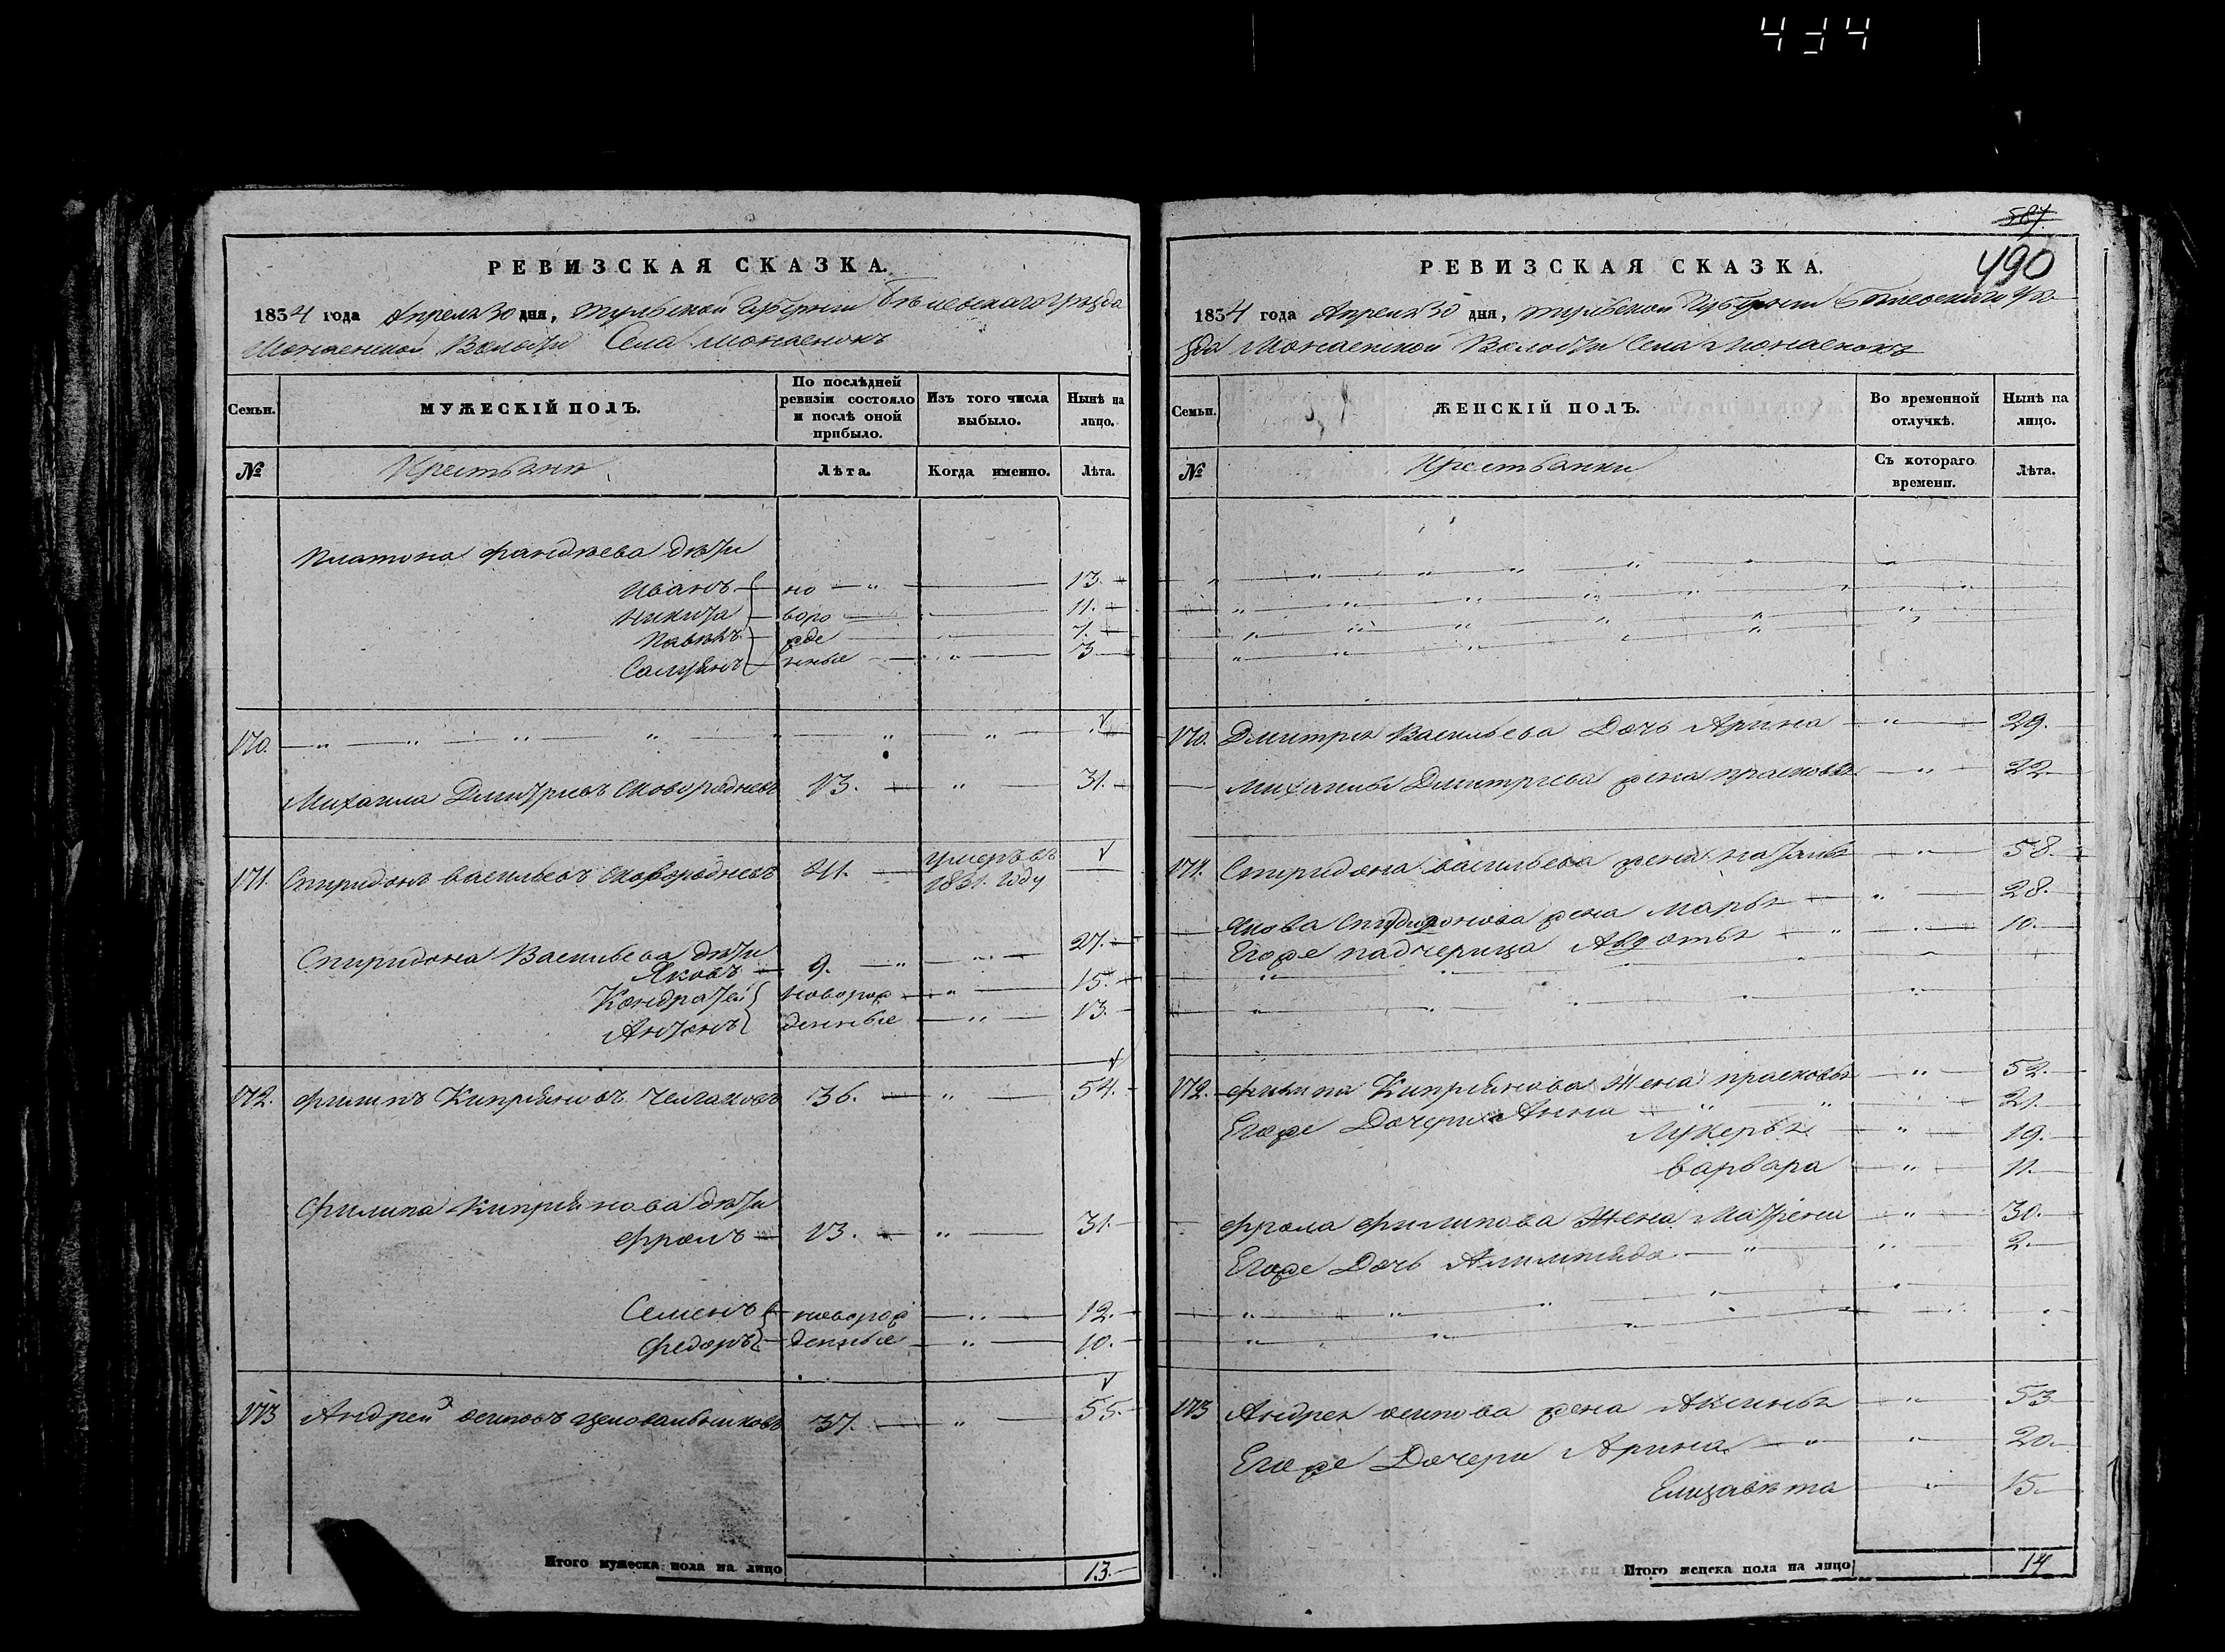 434
РЕВИЗСКАЯ СКАЗКА.
1834 года Апреля 30 дня, Тульской Губернии Бѣлевскаго уѣзда
Волости Села
Семьи.
МУЖЕСКІЙ ПОЛЪ.
По послѣдней ревизіи состояло и послѣ оной прибыло.
Изъ того числа выбыло.
Нынѣ на лицо.
№
Крестьяне
Лѣта.
Когда именно.
Лѣта.
Платона дѣти
Иванъ но — " — 13.
Никита воро — 11.
Павелъ жде — " — 7.
нные — " — 3
170. — " — " — " — " —
Михаила Дмитріевъ Сковородневъ 13. — " — 31.
171. Спиридонъ Васильевъ Сковородневъ 41. умеръ въ 1831. году
Спиридона Васильева дѣти
Яковъ 9. — " — 27.
Кондратей новорож — " — 15.
Антонъ денные — " — 13.
172. Филипъ Кипріяновъ 36. — " — 54.
Филипа Кипріянова дѣти
Фролъ 13. — " — 31.
Семенъ новорож — " — 12.
Федоръ денные — " — 10.
173 Андрей Осиповъ Целовальниковъ 37. — " — 55.
Итого мужеска пола на лицо 13.
587
490
РЕВИЗСКАЯ СКАЗКА.
1834 года Апреля 30 дня, Тульской Губернии Бѣлевскаго уѣ
зда Волости Села
Семьи.
ЖЕНСКІЙ ПОЛЪ.
Во временной отлучкѣ.
Нынѣ на лицо.
№
Крестьянки
Съ котораго времени.
Лѣта.
170. Дмитрія Васильева Дочь Арина — " — 29.
Михаилы Дмитріева жена Прасковья — " — 22.
171. Спиридона Васильева жена Наталья — " — 58.
Якова Спиридонова жена Марья — " — 28.
Егоже падчерица Авдотья — " — 10.
172. Филипа Кипріянова Жена Прасковья — " — 52.
Егоже Дочери Анна — " — 21.
Лукерья — " — 19.
Варвара — " — 11.
Фрола Филипова Жена Матрена — " — 30.
Егоже Дочь — " — 2.
173 Андрея Осипова жена Аксинья — " — 53
Егоже Дочери Арина — " — 20.
Елизавета — " — 15.
Итого женска пола на лицо 14